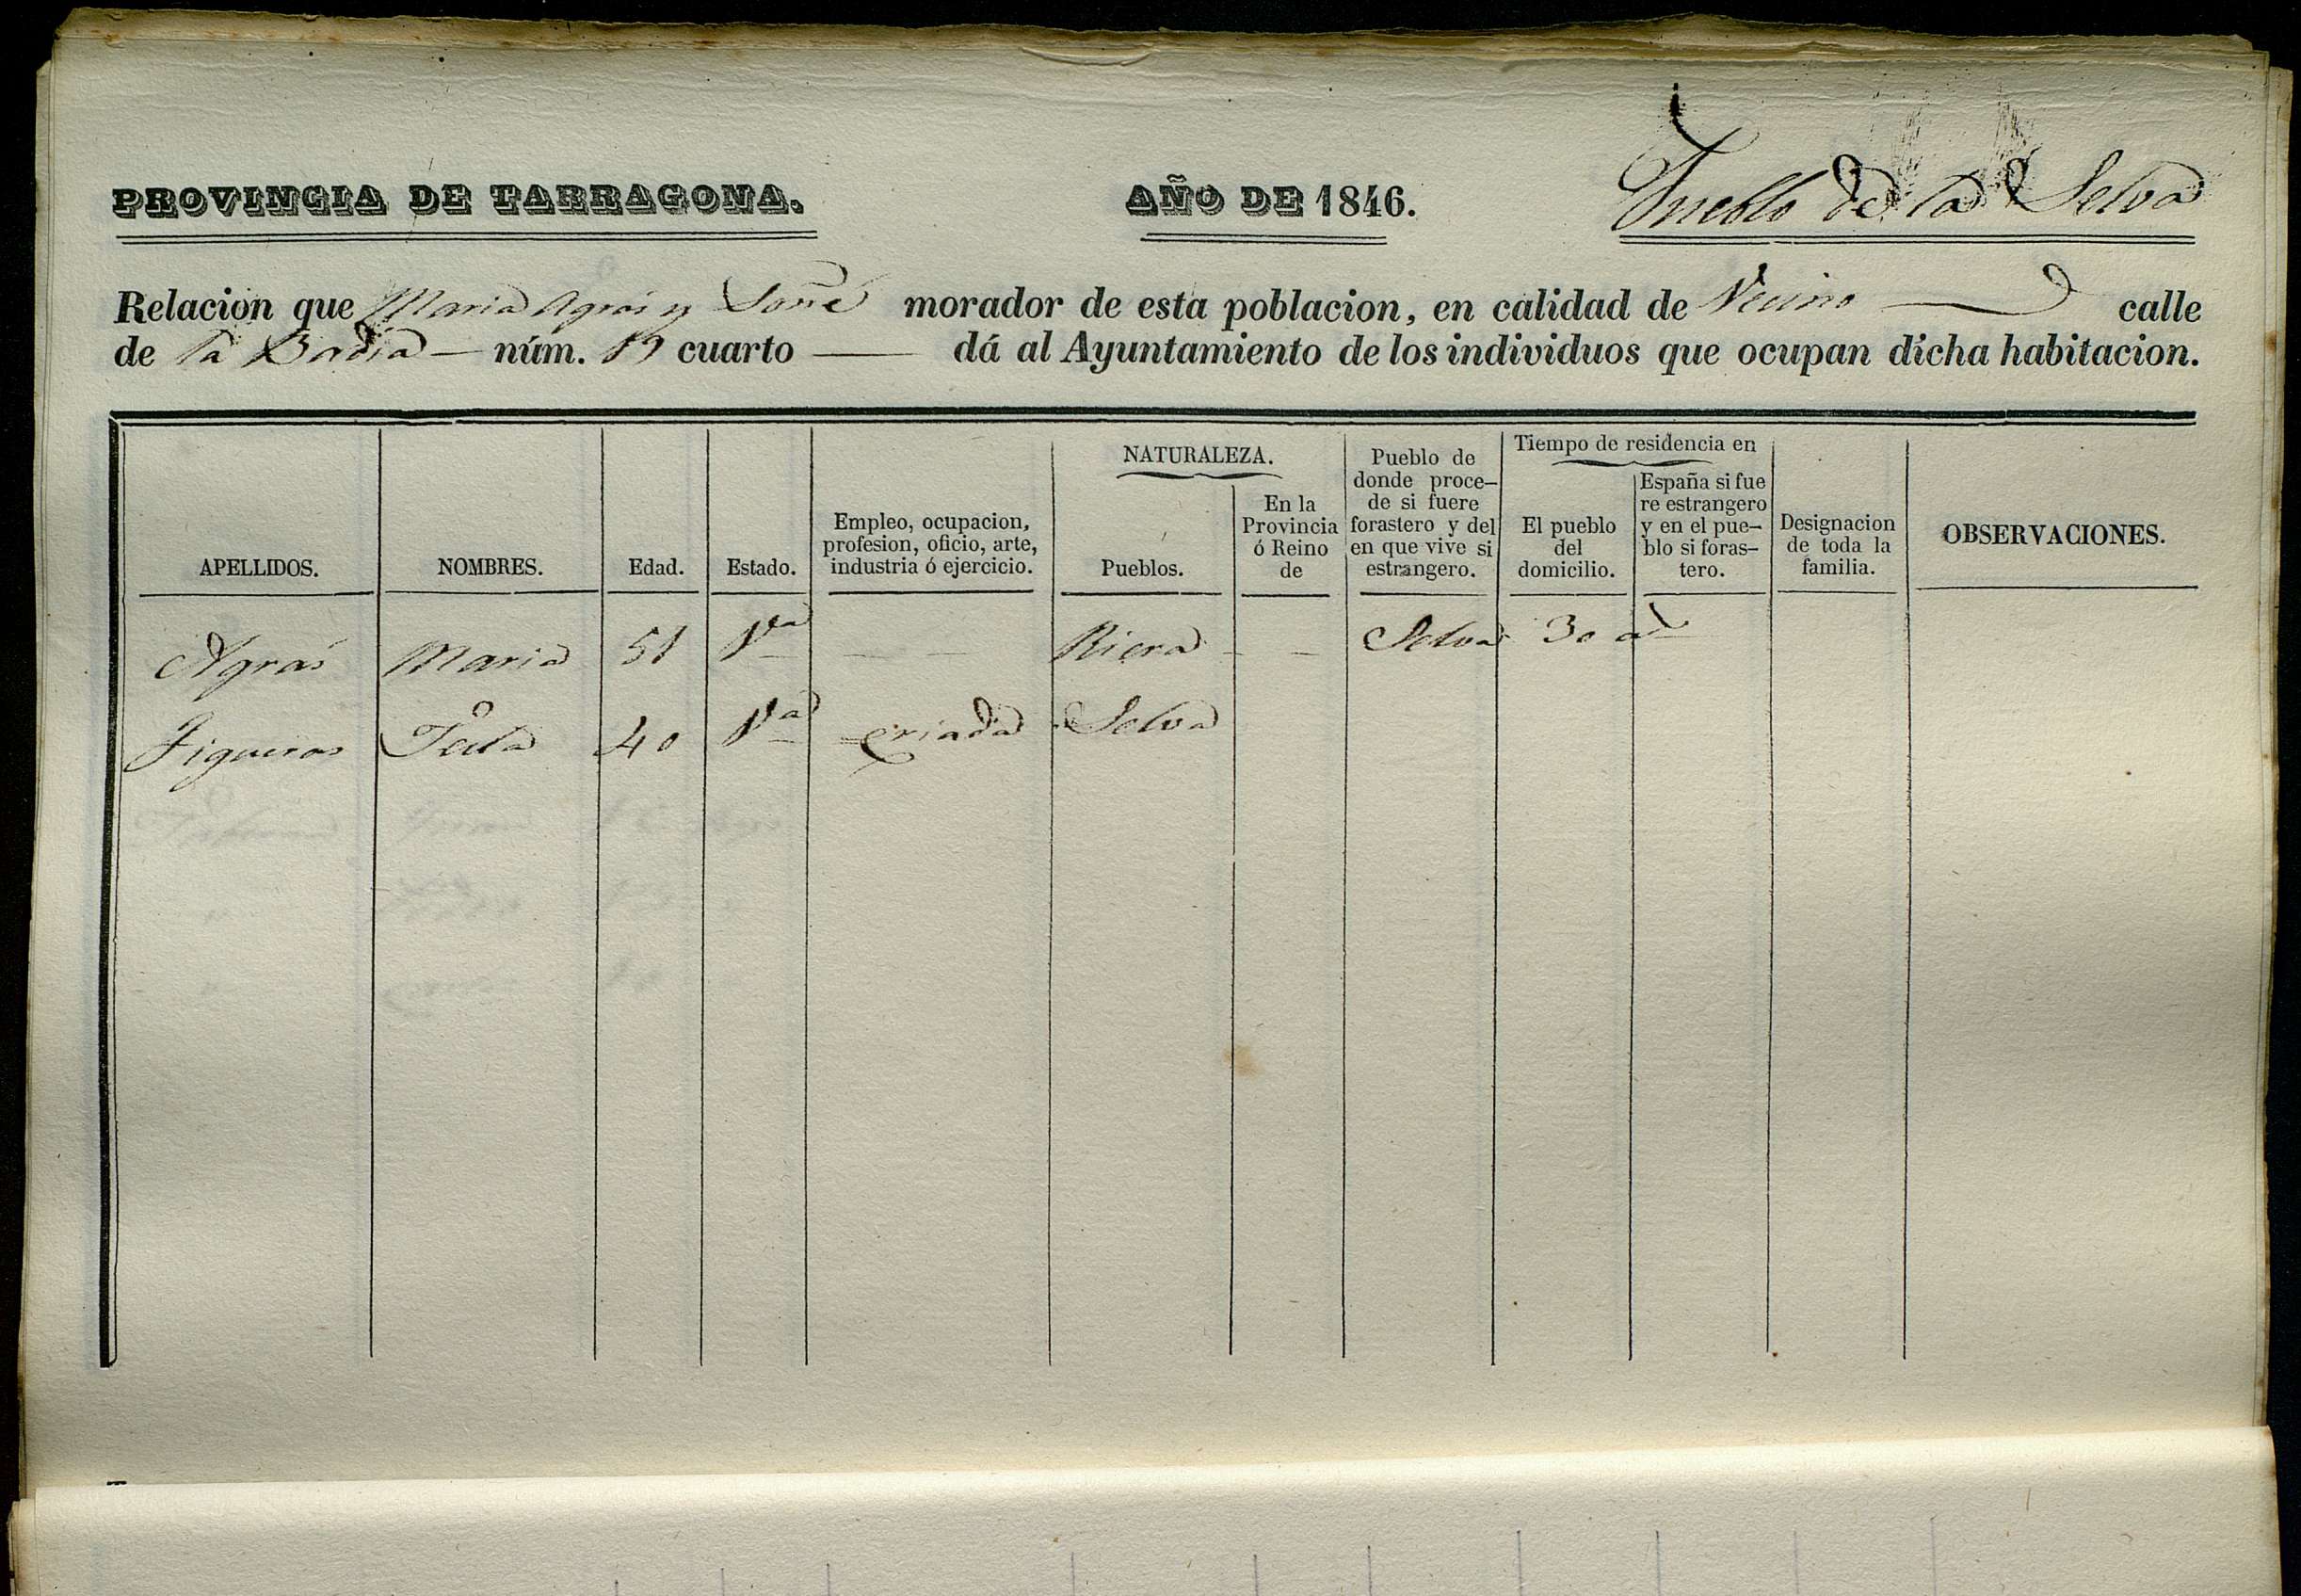 PROVINCIA DE TARRAGONA. AÑO DE 1846. Pueblo de la Selva
Relacion que Maria Agrás y morador de esta poblacion, en calidad de Vecino calle
de la Badia — núm. 19 cuarto — dá al Ayuntamiento de los individuos que ocupan dicha habitacion.
APELLIDOS. NOMBRES. Edad. Estado. Empleo, ocupacion, profesion, oficio, arte, industria ó ejercicio. NATURALEZA. Pueblos. En la Provincia ó Reino de Pueblo de donde proce- de si fuere forastero y del en que vive si estrangero. Tiempo de residencia en El pueblo del domicilio. España si fue re estrangero y en el pue- blo si foras- tero. Designacion de toda la familia. OBSERVACIONES.
Agrás Maria 51 Vda — — Riera — — Selva 30 as
Figueras Tecla 40 Vda criada Selva